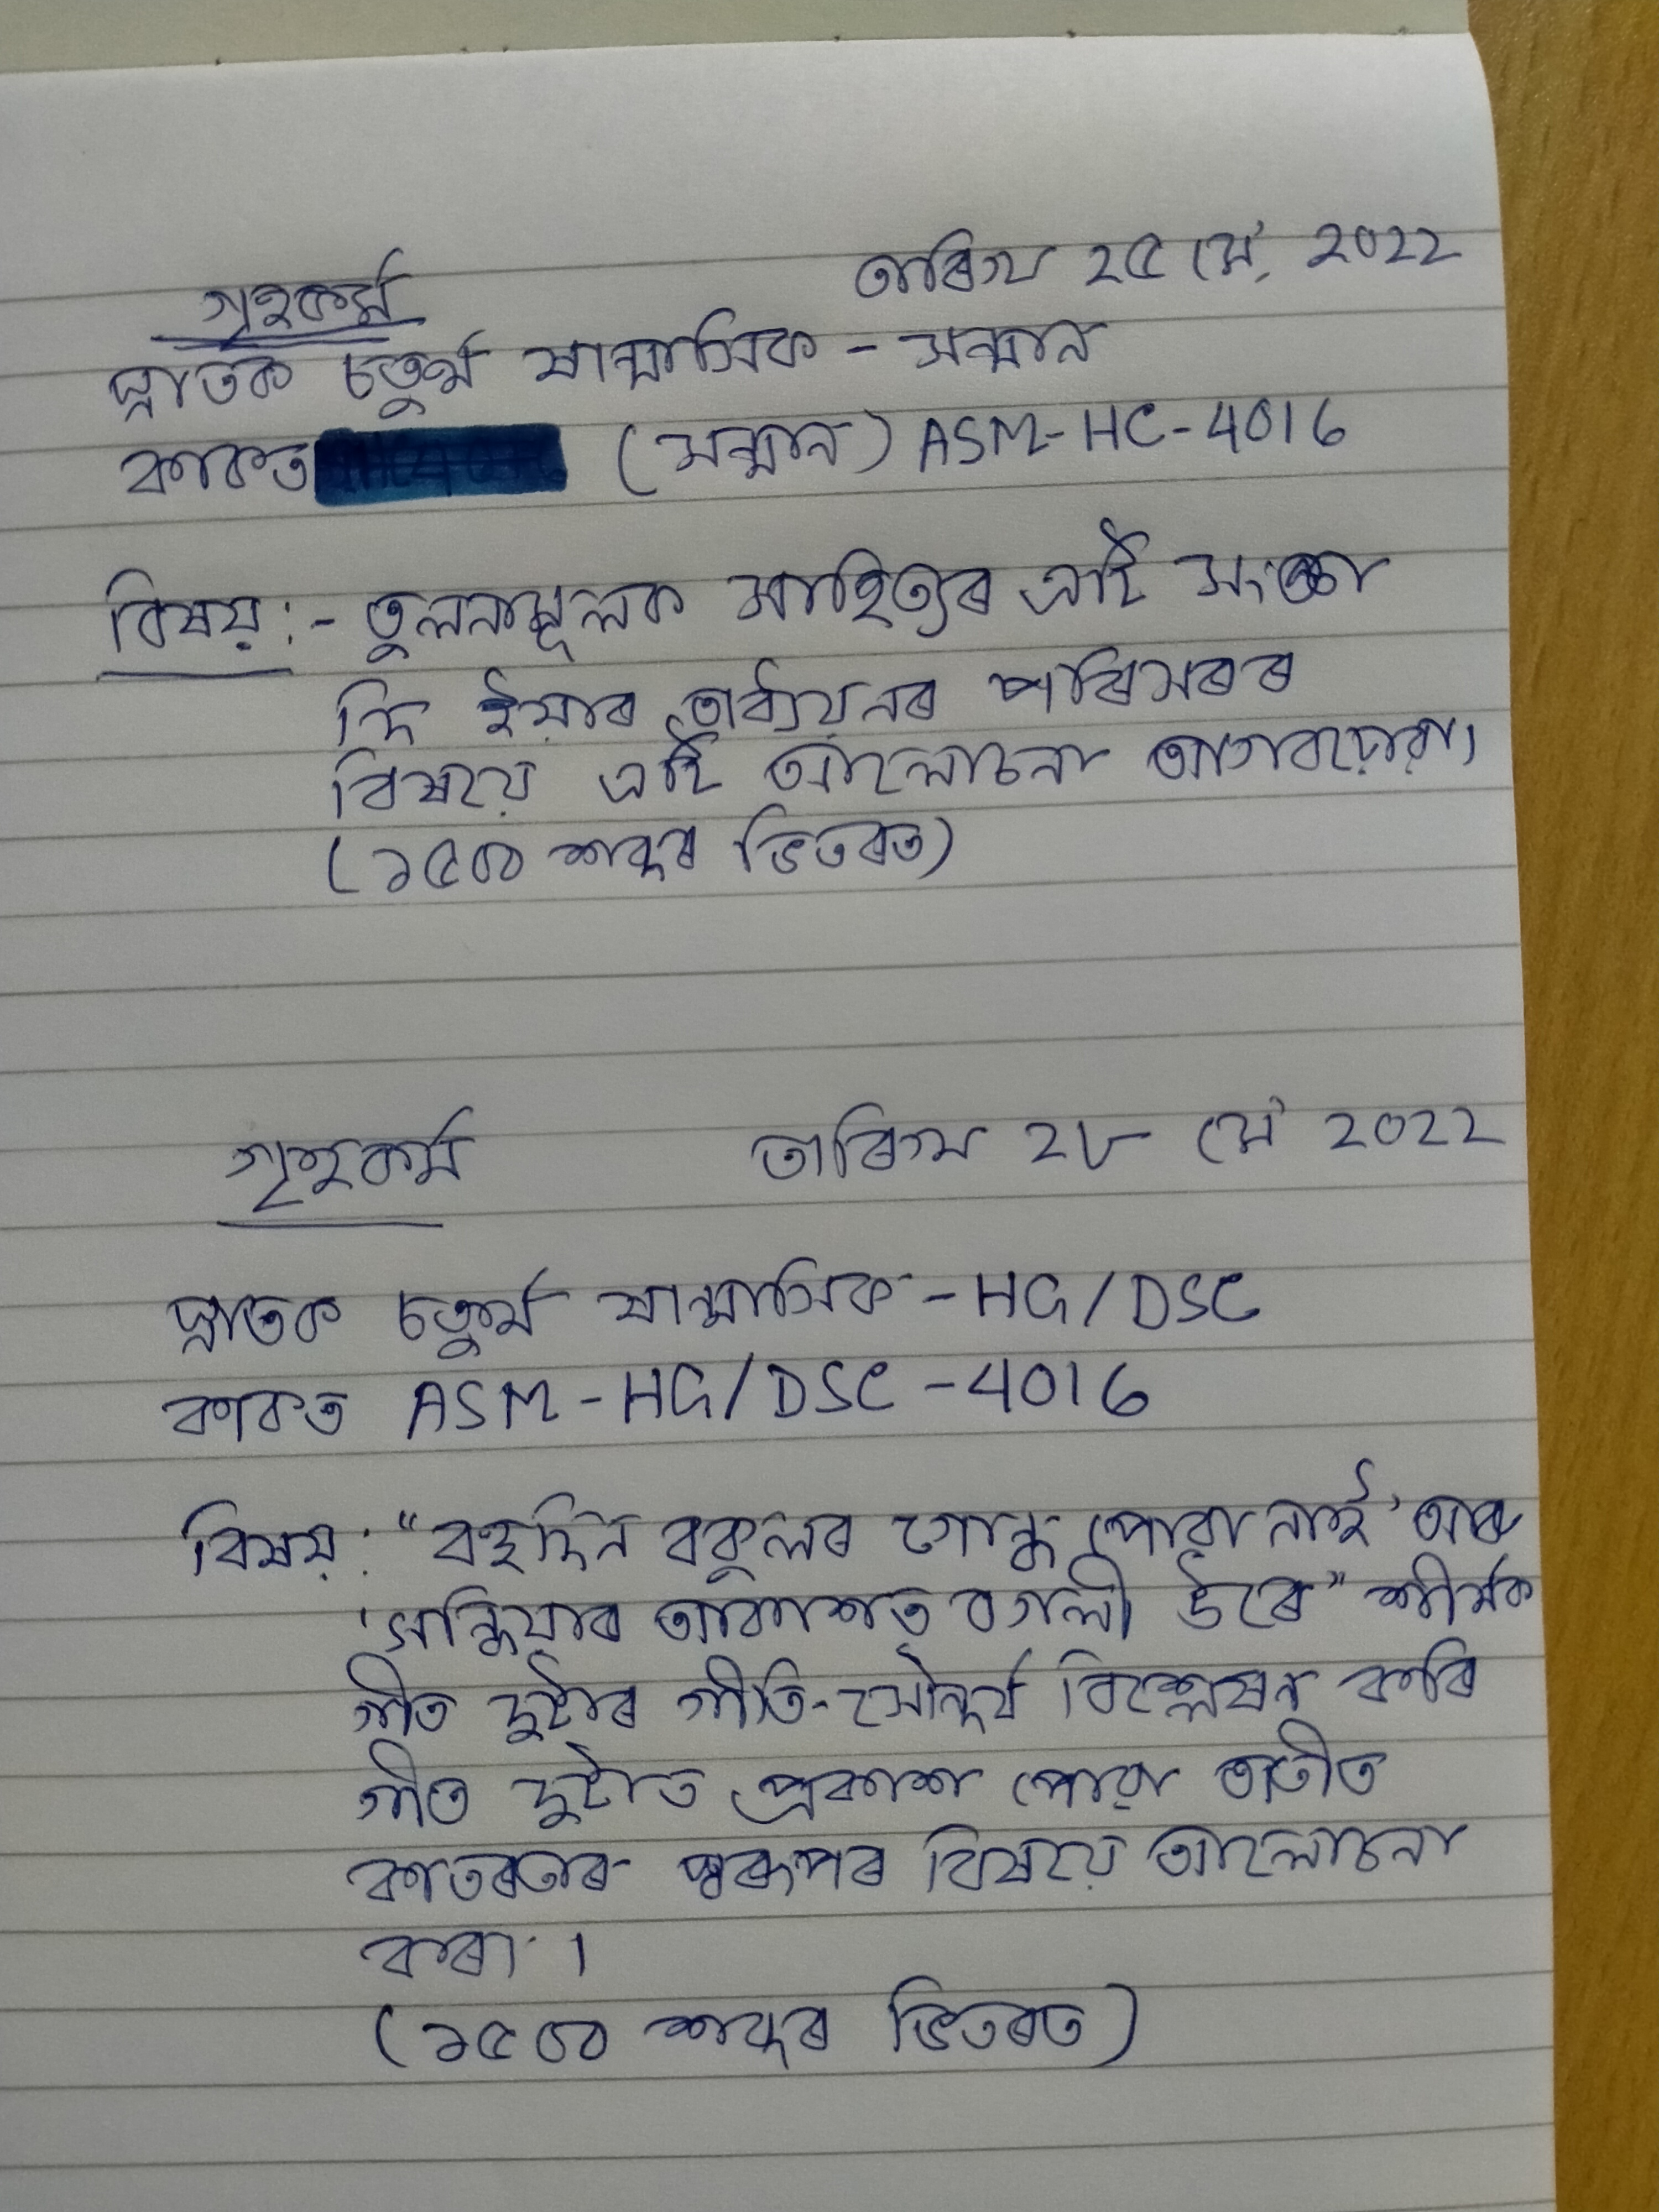 তাৰিখ ২৫ মে', ২০২২
গৃহকৰ্ম
স্নাতক চতুৰ্থ ষান্মাসিক - সন্মান
কাকত (সন্মান) ASM-HC-4016
বিষয়:- তুলনামূলক সাহিত্যৰ এটি সংজ্ঞা
দি ইয়াৰ অধ্যয়নৰ পৰিসৰৰ
বিষয়ে এটি আলোচনা আগবঢ়োৱা।
(১৫০০ শব্দৰ ভিতৰত)
গৃহকৰ্ম তাৰিখ ২৮ মে' ২০২২
স্নাতক চতুৰ্থ ষান্মাসিক - HG/DSC
কাকত ASM-HG/DSC-4016
বিষয়: "বহুদিন বকুলৰ গোন্ধ পোৱা নাই' আৰু
'সন্ধিয়াৰ আকাশত বগলী উৰে" শীৰ্ষক
গীত দুটাৰ গীতি-সৌন্দৰ্য বিশ্লেষণ কৰি
গীত দুটাত প্ৰকাশ পোৱা অতীত
কাতৰতাৰ স্বৰূপৰ বিষয়ে আলোচনা
কৰা।
(১৫০০ শব্দৰ ভিতৰত)